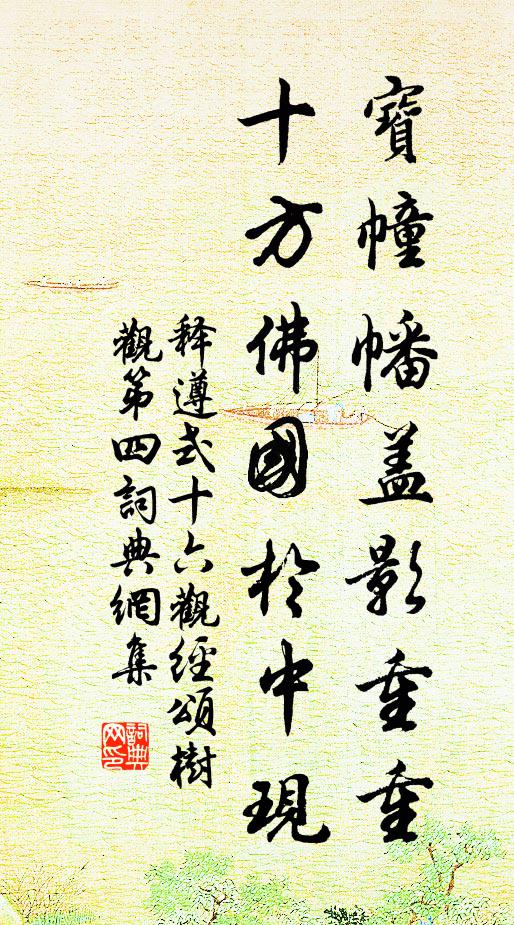 寶幢幡盖影重重
十方佛國於中現
释遵式十六觀經頌樹
觀第四詞典網集
詞典网印